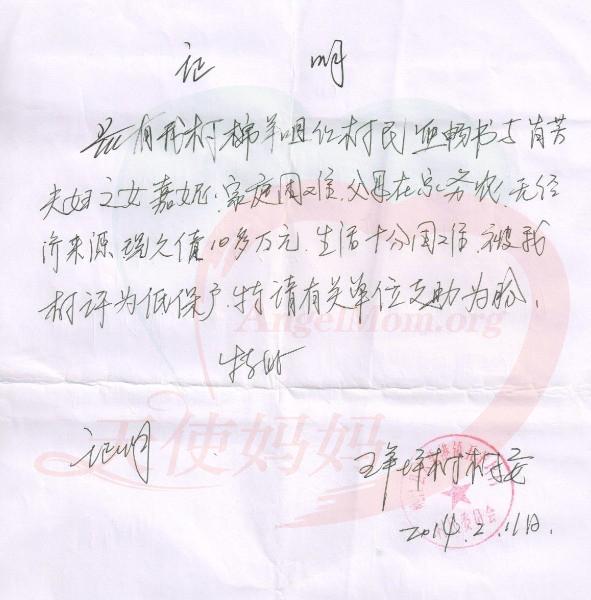 证 明
兹有我村棉羊咀组村民 畅书与肖芳
夫妇之女嘉妮.家庭困难.父母在家务农.无经
济来源.现欠债10多万元.生活十分困难.被我
村评为低保户.特请有关单位支助为盼.
AngelMom.org
特此
天使妈妈
证明
坪村村委
2014.2.11日.